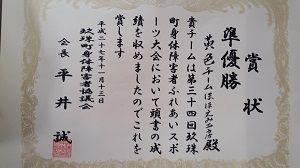 賞状
準優勝
黄色チームほほえみ工房殿
貴チームは第三十四回玖珠
町身体障害者ふれあいスポ
ーツ大会において頭書の成
績を収めましたのでこれを
賞します
平成二十七年十一月十三日
玖珠町身体障害者協議会
会長 平井誠